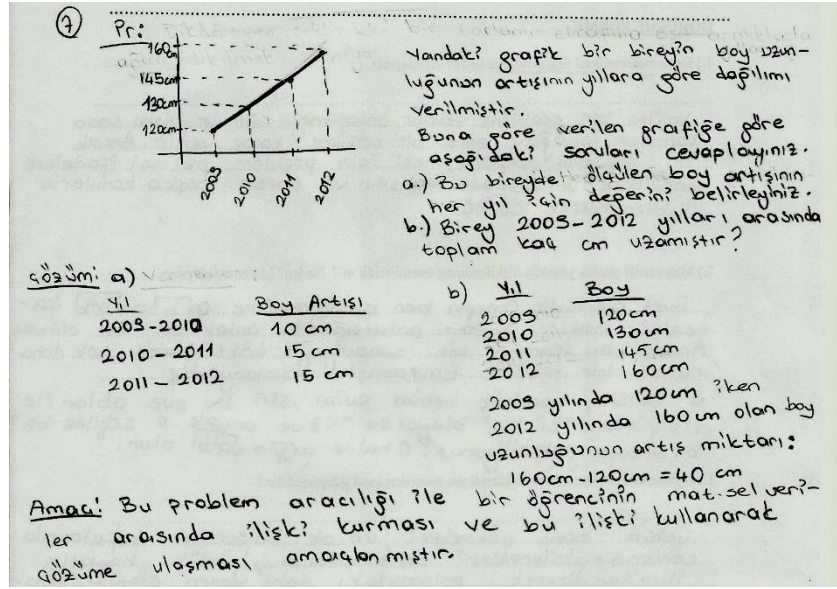 7
Pr:
160cm
145cm
130cm
120cm
2009 2010 2011 2012
Yandaki grafik bir bireyin boy uzun-
luğunun artışının yıllara göre dağılımı
verilmiştir.
Buna göre verilen grafiğe göre
aşağıdaki soruları cevaplayınız.
a.) Bu bireydeki ölçülen boy artışının
her yıl için değerini belirleyiniz.
b.) Birey 2009-2012 yılları arasında
toplam kaç cm uzamıştır?
Çözüm: a)
Yıl Boy Artışı
2009-2010 10 cm
2010-2011 15 cm
2011-2012 15 cm
b) Yıl Boy
2009 120cm
2010 130cm
2011 145cm
2012 160cm
2009 yılında 120cm iken
2012 yılında 160cm olan boy
uzunluğunun artış miktarı:
160cm-120cm=40 cm
Amaç: Bu problem aracılığı ile bir öğrencinin mat.sel veri-
ler arasında ilişki kurması ve bu ilişki kullanarak
çözüme ulaşması amaçlanmıştır.